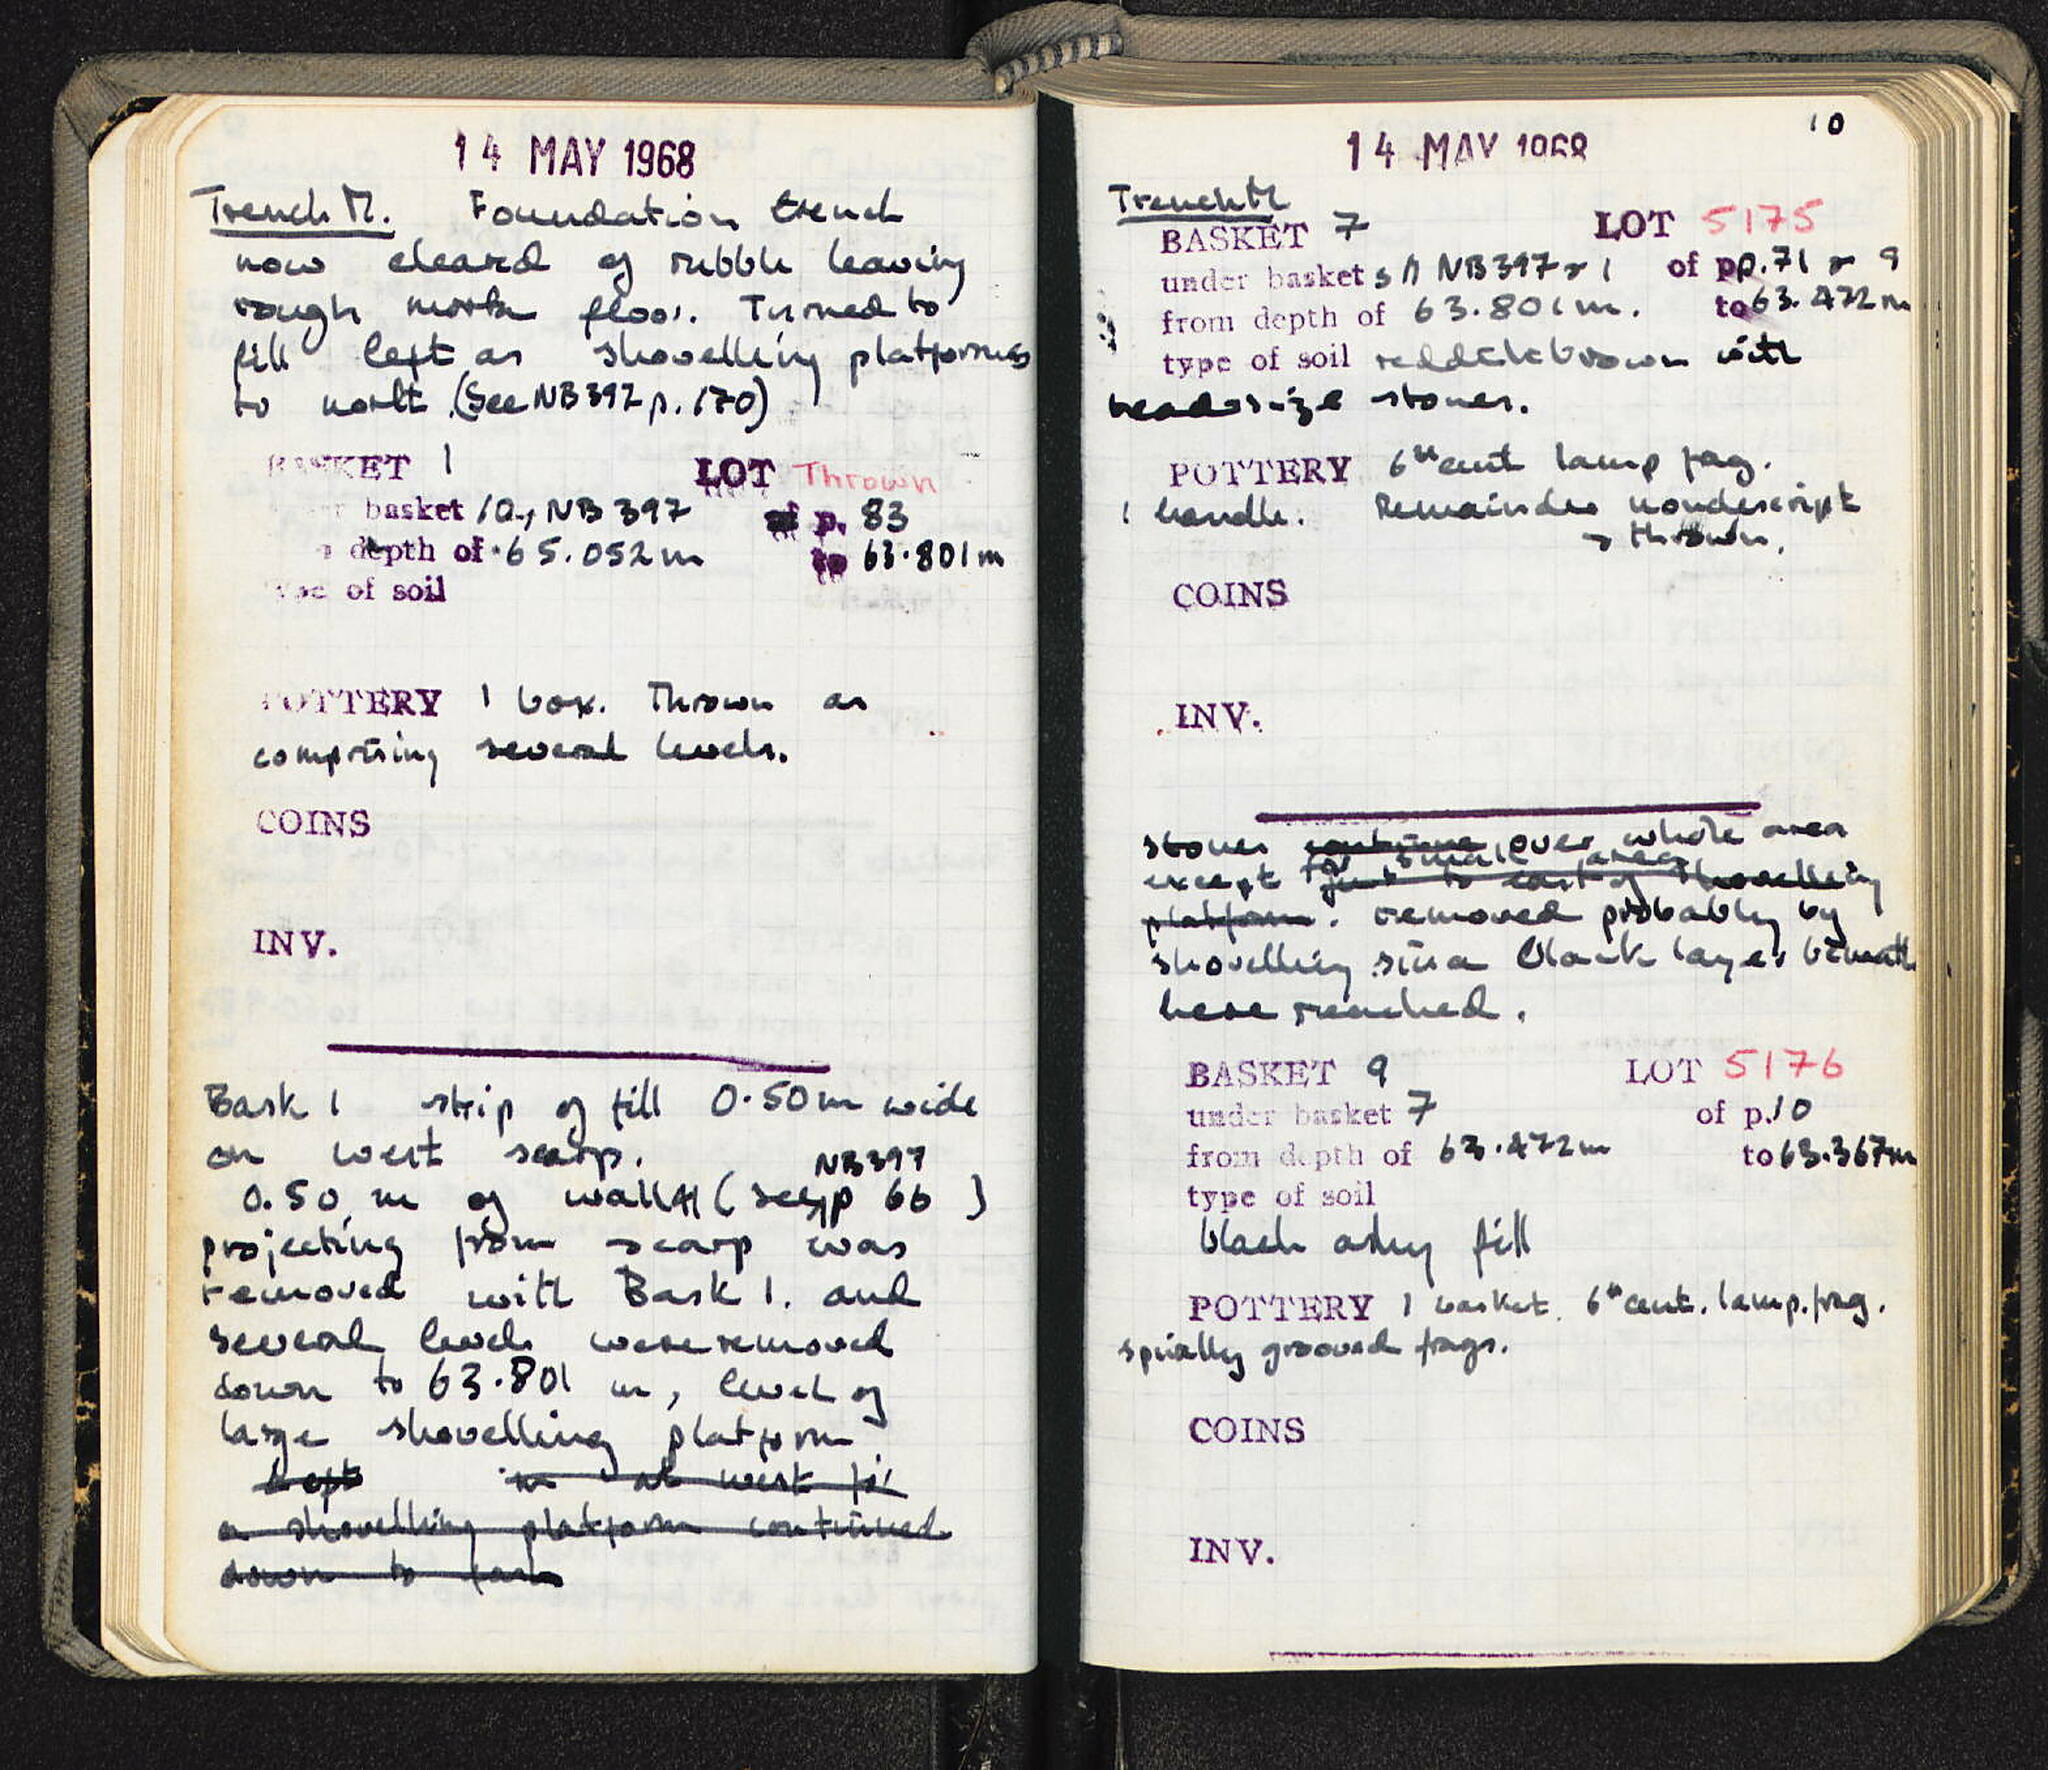 14 MAY 1968
Trench M. Foundation trench
now cleared of rubble leaving
rough mortar floor. Turned to
fill left as shovelling platforms
to north. (See NB 397 p. 170)
BASKET 1 LOT Thrown
basket 10, NB 397 of p. 83
depth of 65.052 m to 63.801 m
type of soil
POTTERY 1 box. Thrown as
comprising several levels.
COINS
INV.
Bask 1 strip of fill 0.50 m wide
on west scarp.
NB397
0.50 m of wall H (see p 66 )
projecting from scarp was
removed with Bask 1. and
several levels were removed
down to 63.801 m, level of
large shovelling platform.
Left in at west for
a shovelling platform continued
down to
10
14 MAY 1968
Trench M
BASKET 7 LOT 5175
under baskets 11 NB397 & 1 of pp. 71 & 9
from depth of 63.801 m. to 63.472 m
type of soil reddish brown with
head-size stones.
POTTERY 6th cent lamp frag.
1 handle. Remainder nondescript
→ thrown.
COINS
INV.
stones continue over whole area
except for small area
just to east of shovelling
platform. removed probably by
shovelling since black layer beneath
here reached.
BASKET 9 LOT 5176
under basket 7 of p. 10
from depth of 63.472 m to 63.367 m
type of soil
black ashy fill
POTTERY 1 basket. 6th cent. lamp. frag.
spirally grooved frags.
COINS
INV.